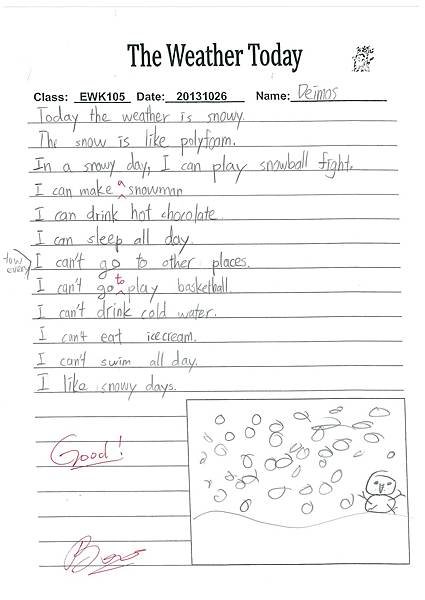 The Weather Today
Class: EWK105 Date: 20131026 Name: Deimos
Today the weather is snowy.
The snow is like polyfoam.
In a snowy day, I can play snowball fight.
I can make a snowman
I can drink hot chocolate.
I can sleep all day.
I can't go to other places.
I can't go to play basketball.
I can't drink cold water.
I can't eat icecream.
I can't swim all day.
I like snowy days.
Good!